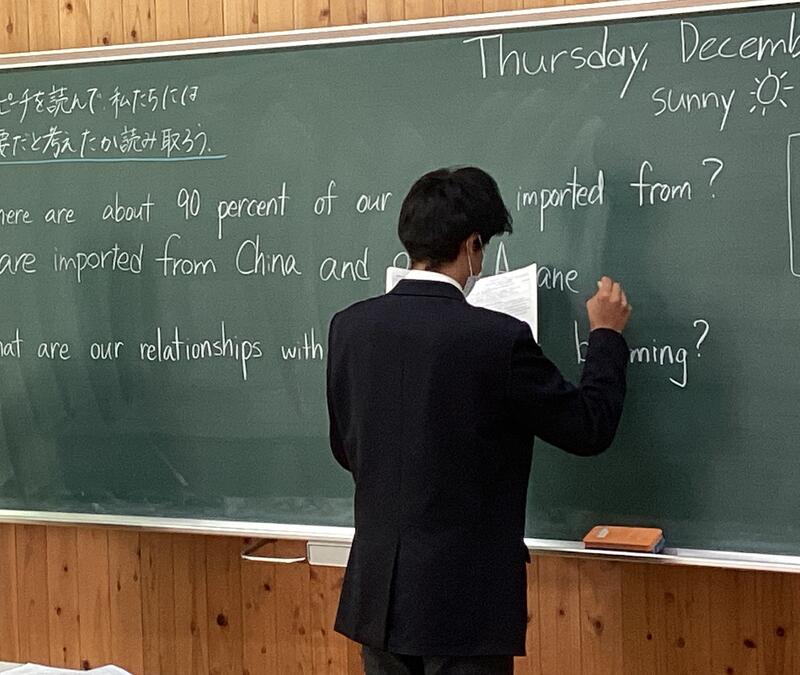 Thursday, Decemb
sunny
ピーチを読んで、私たちには
要だと考えたか読み取ろう.
here are about 90 percent of our imported from?
are imported from China and A ane
hat are our relationships with b ming?